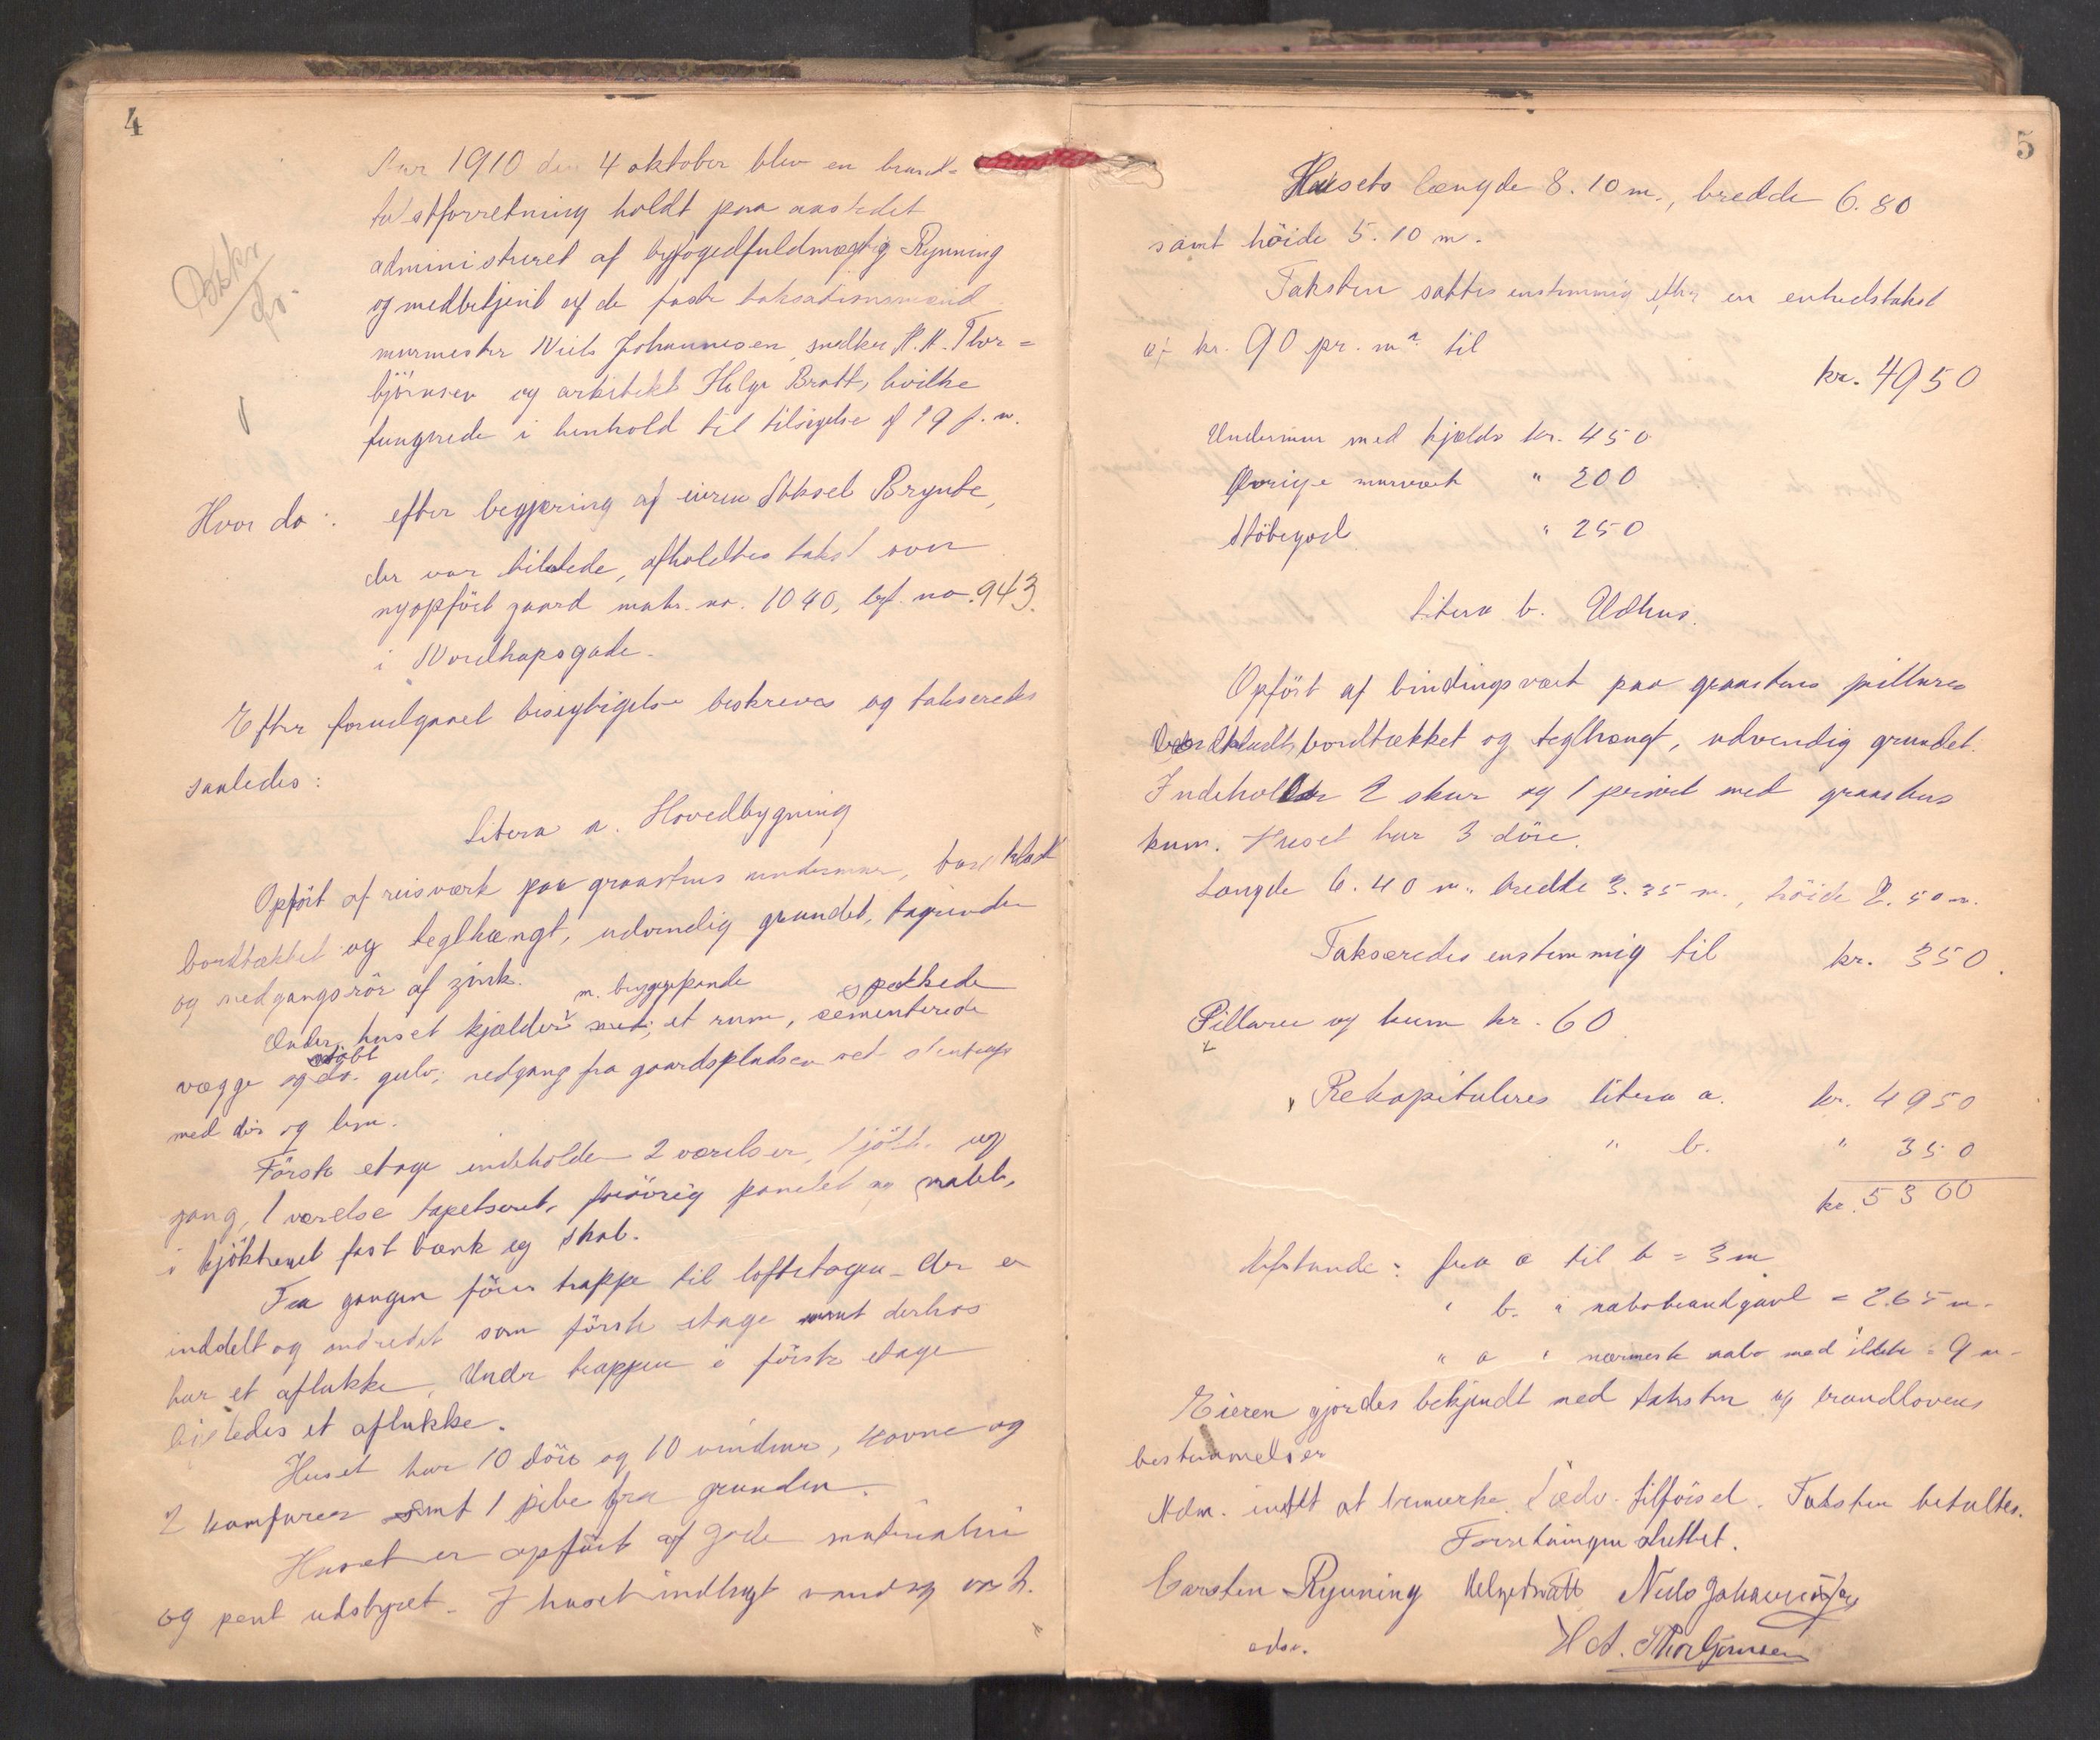 4
Aar 1910 den 4 oktober blev en brand-
takstforretning holdt paa aastedet
administreret af byfogedfuldmægtig Rynning
og medbetjent af de faste taksationsmænd
murmester Niels Johannesen, snedker H. A. Thor=
björnsen og arkitekt Helge Bratt, hvilke
fungerede i henhold til tilsigelse af 19 f. m.
Bskr
Hvor da:
efter begjæring af eieren Aksel Brynte,
der var tilstede, afholdtes takst over
nyopfört gaard matr. no. 1040, brf. no. 943.
i Nordkapsgade.
Efter forudgaaet besigtigelse beskreves og takseredes
saaledes:
Litera a. Hovedbygning
Opfört af reisværk paa graastens undermur, bordklædt
bordtækket og teglhængt, udvendig grundet, tagrender
og nedgangsrör af zink.
m. bryggepande
spækkede
Under huset kjælder med: et rum, cementerede
stöbt
vægge og do. gulv; nedgang fra gaardspladsen ved stentrappe
med dör og lem.
Förste etage indeholder 2 værelser, kjökk. og
gang, 1 værelse tapetseret, forövrig panelet og malet,
i kjökkenet fast bænk og skab.
Fra gangen förer trappe til loftetagen – der er
inddelt og indredet som förste etage samt derhos
har et aflukke. Under trappen i förste etage
ligeledes et aflukke.
Huset har 10 döre og 10 vinduer, 4 ovne og
2 komfurer samt 1 pibe fra grunden.
Huset er opfört af gode materialier
og pent udstyret. I huset indlagt vand og vask.
5
Husets længde 8.10 m., bredde 6.80
samt höide 5.10 m.
Taksten sattes enstemmig efter en enhedstakst
af kr. 90 pr. m² til
kr. 4950
Undermur med kjælder kr. 450
Övrige murværk " 200
Stöbegods " 250
Litera b. Udhus.
Opfört af bindingsværk paa graastens pillarer
bordklædt, bordtækket og teglhængt, udvendig grundet.
Indeholder 2 skur og 1 privet med graastens
kum. Huset har 3 döre.
Længde 6.40 m., bredde 3.35 m., höide 2.50 m.
Takseredes enstemmig til kr. 350.
Pillarer og kum kr. 60
Rekapituleres litera a. kr. 4950
" b. " 350
kr. 5300
Afstande: fra a til b = 3 m
" b. " nabobrandgavl = 2.65 m.
" a " nærmeste nabo med ildste = 9 m.
Eieren gjordes bekjendt med taksten og brandlovens
bestemmelser
Adm. intet at bemærke. Lædv. tilförsel. Taksten betaltes.
Forretningen sluttet.
Carsten Rynning Helge Bratt Niels Johannesen
edsv. H A. Thorbjörnsen